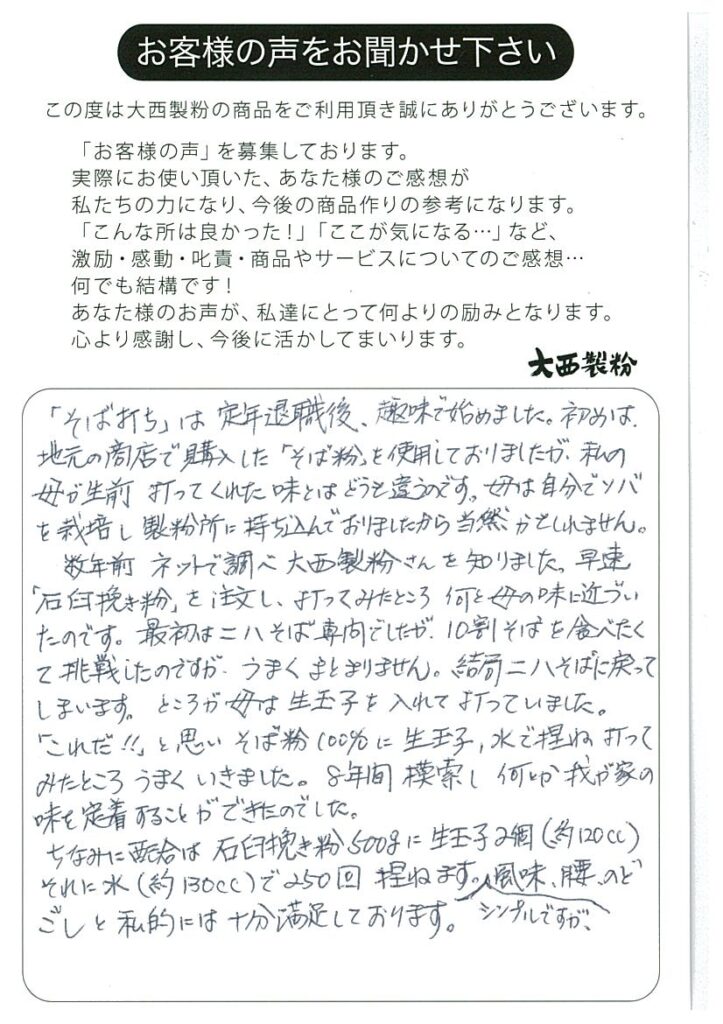 お客様の声をお聞かせ下さい
この度は大西製粉の商品をご利用頂き誠にありがとうございます。
「お客様の声」を募集しております。
実際にお使い頂いた、あなた様のご感想が
私たちの力になり、今後の商品作りの参考になります。
「こんな所は良かった！」「ここが気になる…」など、
激励・感動・叱責・商品やサービスについてのご感想…
何でも結構です！
あなた様のお声が、私達にとって何よりの励みとなります。
心より感謝し、今後に活かしてまいります。
大西製粉
「そば打ち」は定年退職後、趣味で始めました。初めは、
地元の商店で購入した「そば粉」を使用しておりましたが、私の
母が生前 打ってくれた味とはどうも違うのです。母は自分でソバ
を栽培し製粉所に持ち込んでおりましたから当然かもしれません。
数年前 ネットで調べ大西製粉さんを知りました。早速
「石臼挽き粉」を注文し、打ってみたところ 何と母の味に近づい
たのです。最初は二八そば専門でしたが、10割そばを食べたく
て挑戦したのですが、うまくまとまりません。結局二八そばに戻って
しまいます。ところが母は生玉子を入れて打っていました。
「これだ!!」と思いそば粉100%に生玉子,水で捏ね打って
みたところうまくいきました。8年間模索し何とか我が家の
味を定着することができたのでした。
ちなみに配合は石臼挽き粉500gに生玉子2個(約120cc)
それに水(約130cc)で250回捏ねます。シンプルですが、風味、腰、のど
ごしと私的には十分満足しております。